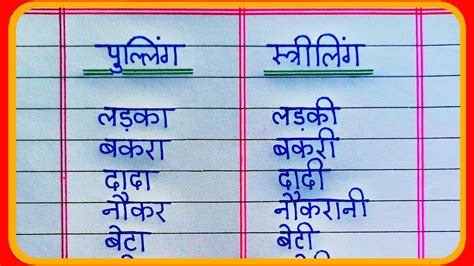 पुल्लिंग स्त्रीलिंग
लड़का लड़की
बकरा बकरी
दादा दादी
नौकर नौकरानी
बेटा बेटी